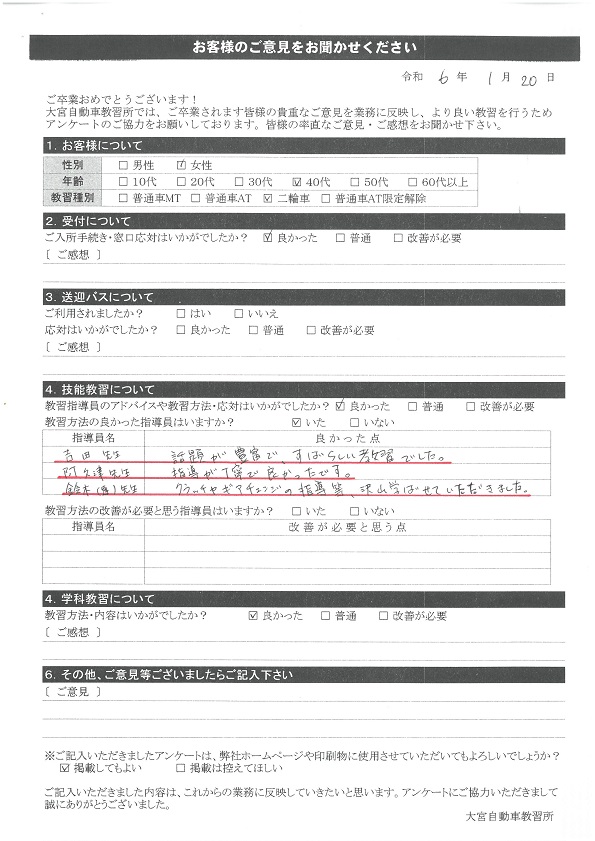 お客様のご意見をお聞かせください
令和 6 年 1 月 20 日
ご卒業おめでとうございます！
大宮自動車教習所では、ご卒業されます皆様の貴重なご意見を業務に反映し、より良い教習を行うため
アンケートのご協力をお願いしております。皆様の率直なご意見・ご感想をお聞かせ下さい。
1. お客様について
性別 □ 男性 ☑ 女性
年齢 □ 10代 □ 20代 □ 30代 ☑ 40代 □ 50代 □ 60代以上
教習種別 □ 普通車MT □ 普通車AT ☑ 二輪車 □ 普通車AT限定解除
2. 受付について
ご入所手続き・窓口応対はいかがでしたか？ ☑ 良かった □ 普通 □ 改善が必要
〔 ご感想 〕
3. 送迎バスについて
ご利用されましたか？ □ はい □ いいえ
応対はいかがでしたか？ □ 良かった □ 普通 □ 改善が必要
〔 ご感想 〕
4. 技能教習について
教習指導員のアドバイスや教習方法・応対はいかがでしたか？ ☑ 良かった □ 普通 □ 改善が必要
教習方法の良かった指導員はいますか？ ☑ いた □ いない
指導員名 良かった点
吉田 先生 話題が豊富で、すばらしい教習でした。
阿久津先生 指導が丁寧で良かったです。
鈴木 先生 クラッチやギアチェンジの指導等、沢山学ばせていただきました。
教習方法の改善が必要と思う指導員はいますか？ □ いた □ いない
指導員名 改善が必要と思う点
4. 学科教習について
教習方法・内容はいかがでしたか？ ☑ 良かった □ 普通 □ 改善が必要
〔 ご感想 〕
6. その他、ご意見等ございましたらご記入下さい
〔 ご意見 〕
※ご記入いただきましたアンケートは、弊社ホームページや印刷物に使用させていただいてもよろしいでしょうか？
☑ 掲載してもよい □ 掲載は控えてほしい
ご記入いただきました内容は、これからの業務に反映していきたいと思います。アンケートにご協力いただきまして
誠にありがとうございました。
大宮自動車教習所